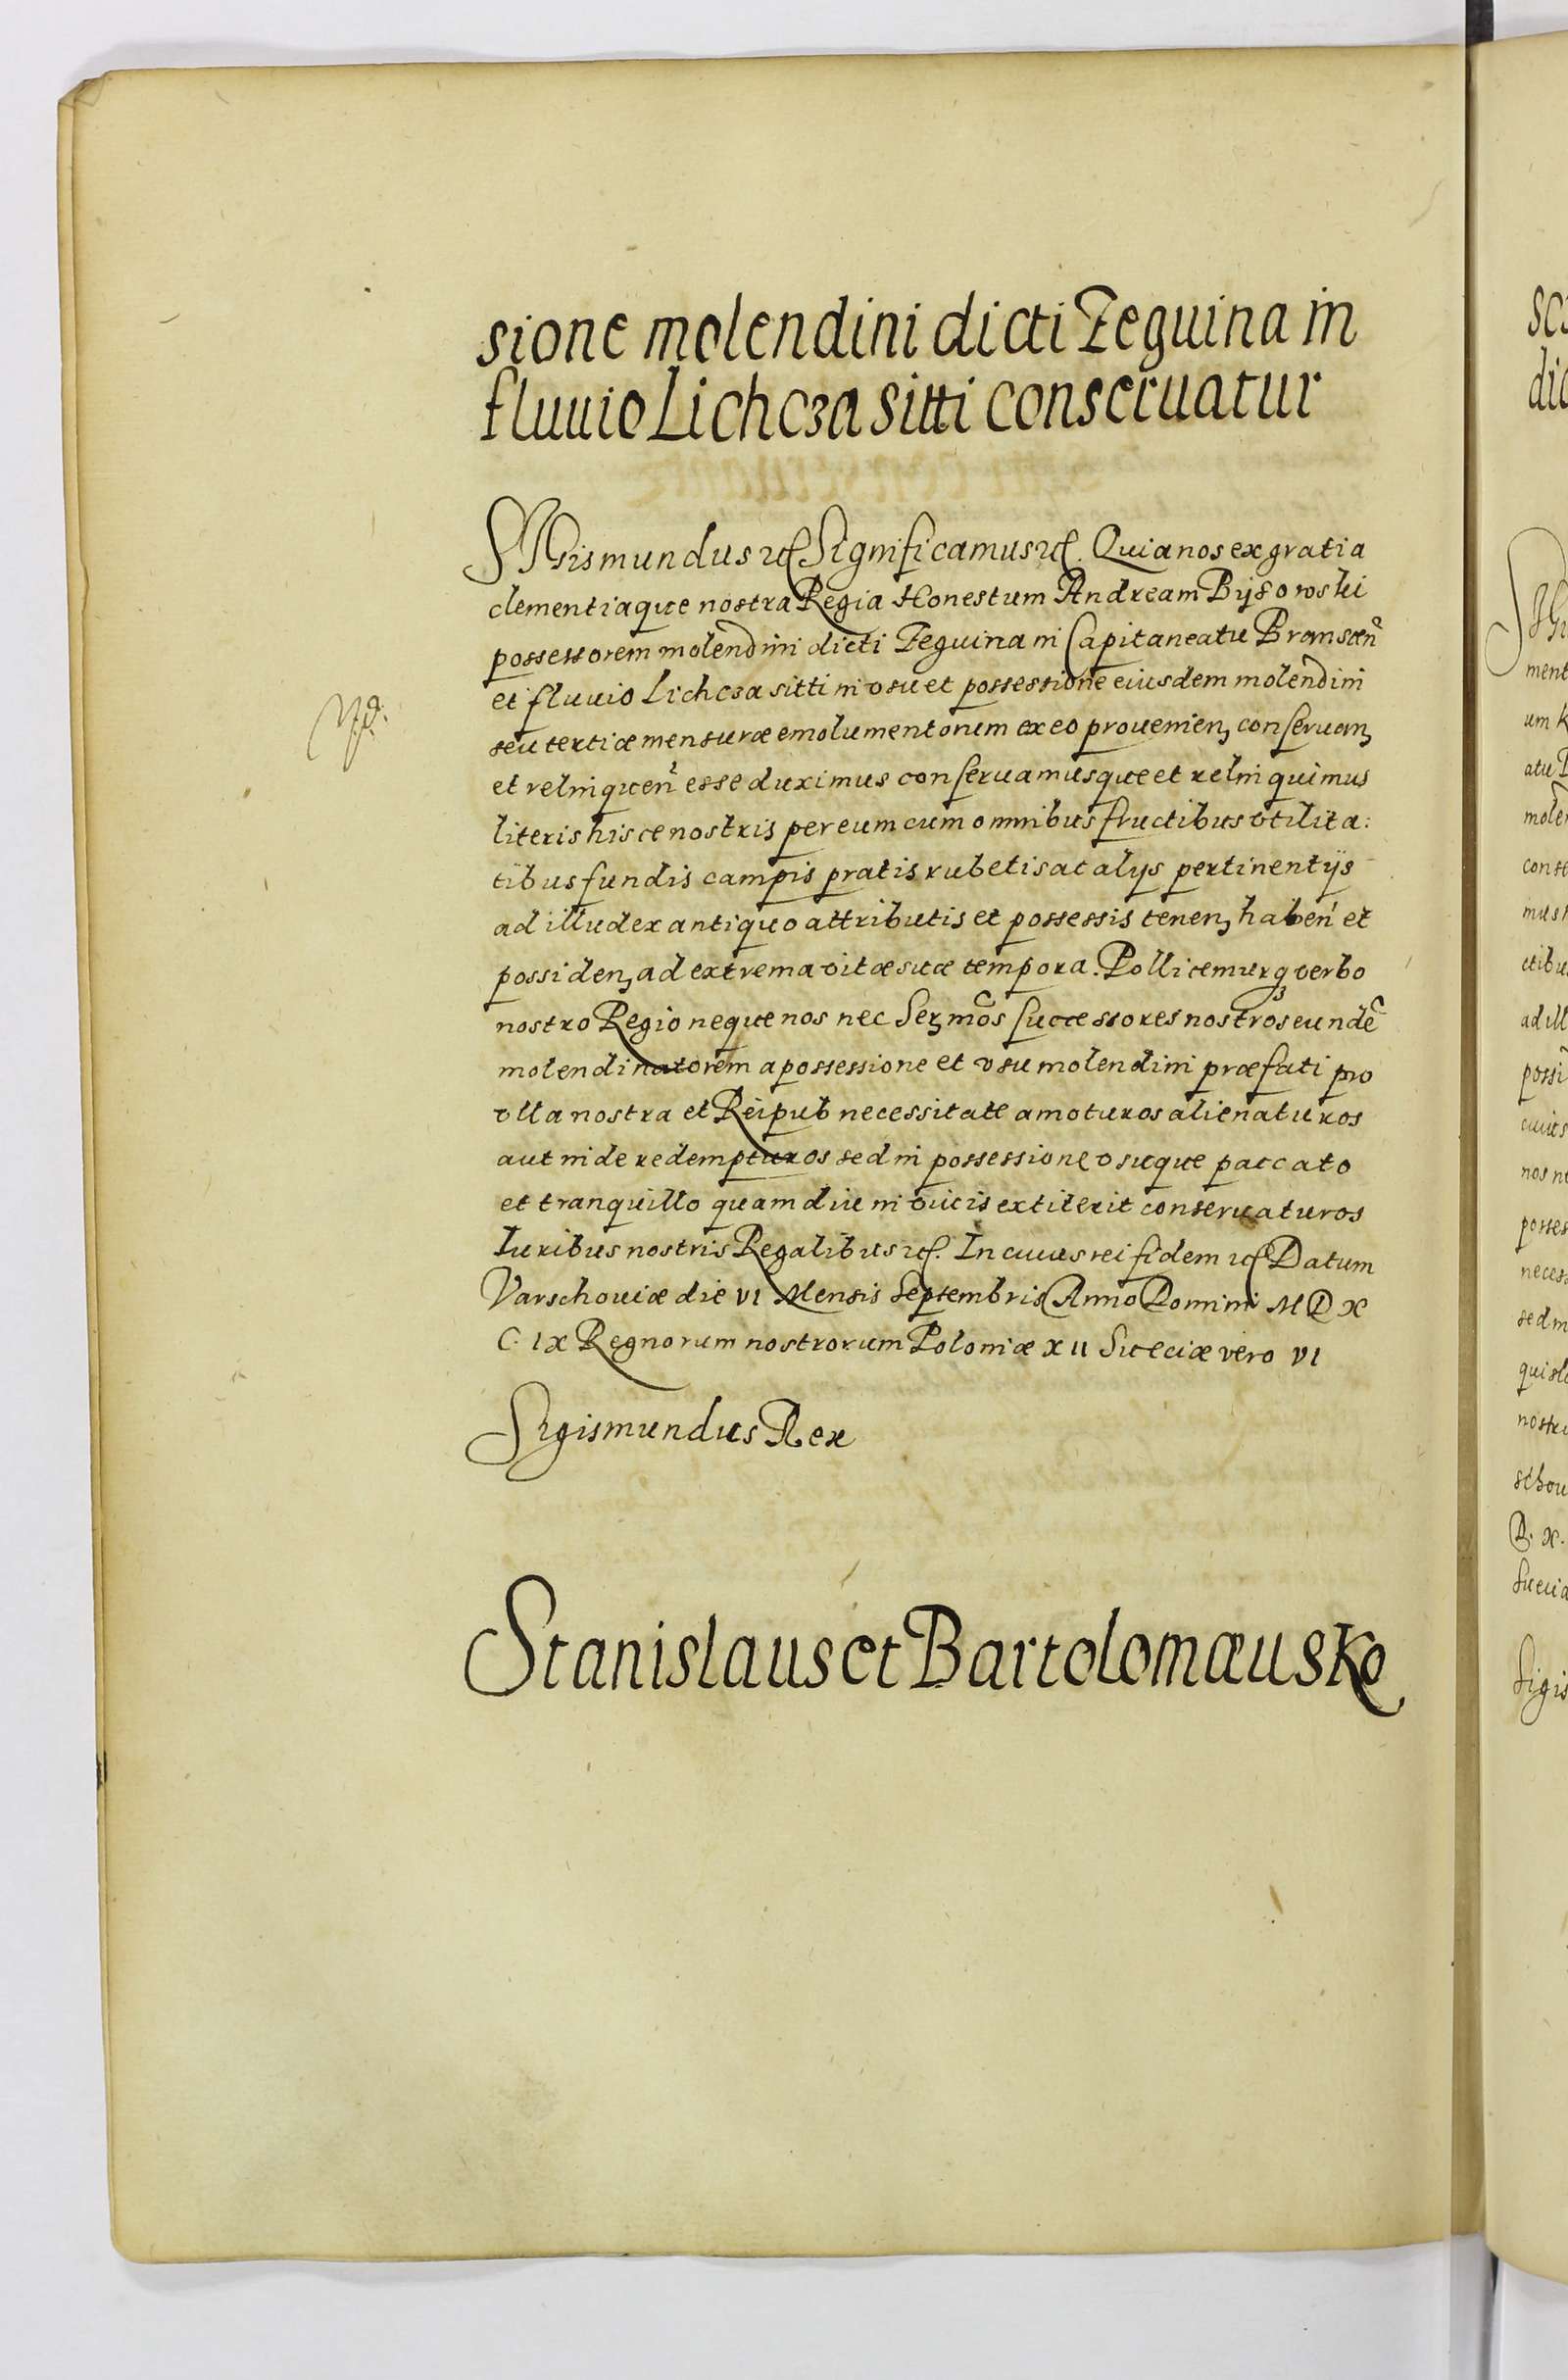 sione molendini dicti Zeguina in
fluuio Lichcza sitti conseruatur
SIGismundus etc Significamus etc. Quia nos ex gratia
clementiaque nostra Regia Honestum Andream Bysowski
possessorem molendini dicti Zeguina in Capitaneatu Bransceñ
et fluuio Lichcza sitti in vsu et possessione eiusdem molendini
seu tertiæ mensuræ emolumentorum ex eo prouenien, conseruan,
et relinquen̄ esse duximus conseruamusque et relinquimus
literis hisce nostris per eum cum omnibus fructibus vtilita:
tibus fundis campis pratis rubetis ac alys pertinentÿs
ad illud ex antiquo attributis et possessis tenen, haben̄ et
possiden, ad extrema vitæ suæ tempora. Pollicemurqȝ verbo
nostro Regio neque nos nec Serꝫmōs successores nostros eundē
molendinatorem a possessione et vsu molendini præfati pro
vlla nostra et Reipub necessitate amoturos alienaturos
aut inde redempturos sed in possessione vsuque paccato
et tranquillo quamdiu in viuis extiterit conseruaturos
Iuribus nostris Regalibus etc. In cuius rei fidem etc Datum
Varschouiæ die VI Mensis Septembris Anno Domini M D X
C. IX Regnorum nostrorum Poloniæ XII Sueciæ vero VI
Sigismundus Rex
Stanislaus et Bartolomæus Ko